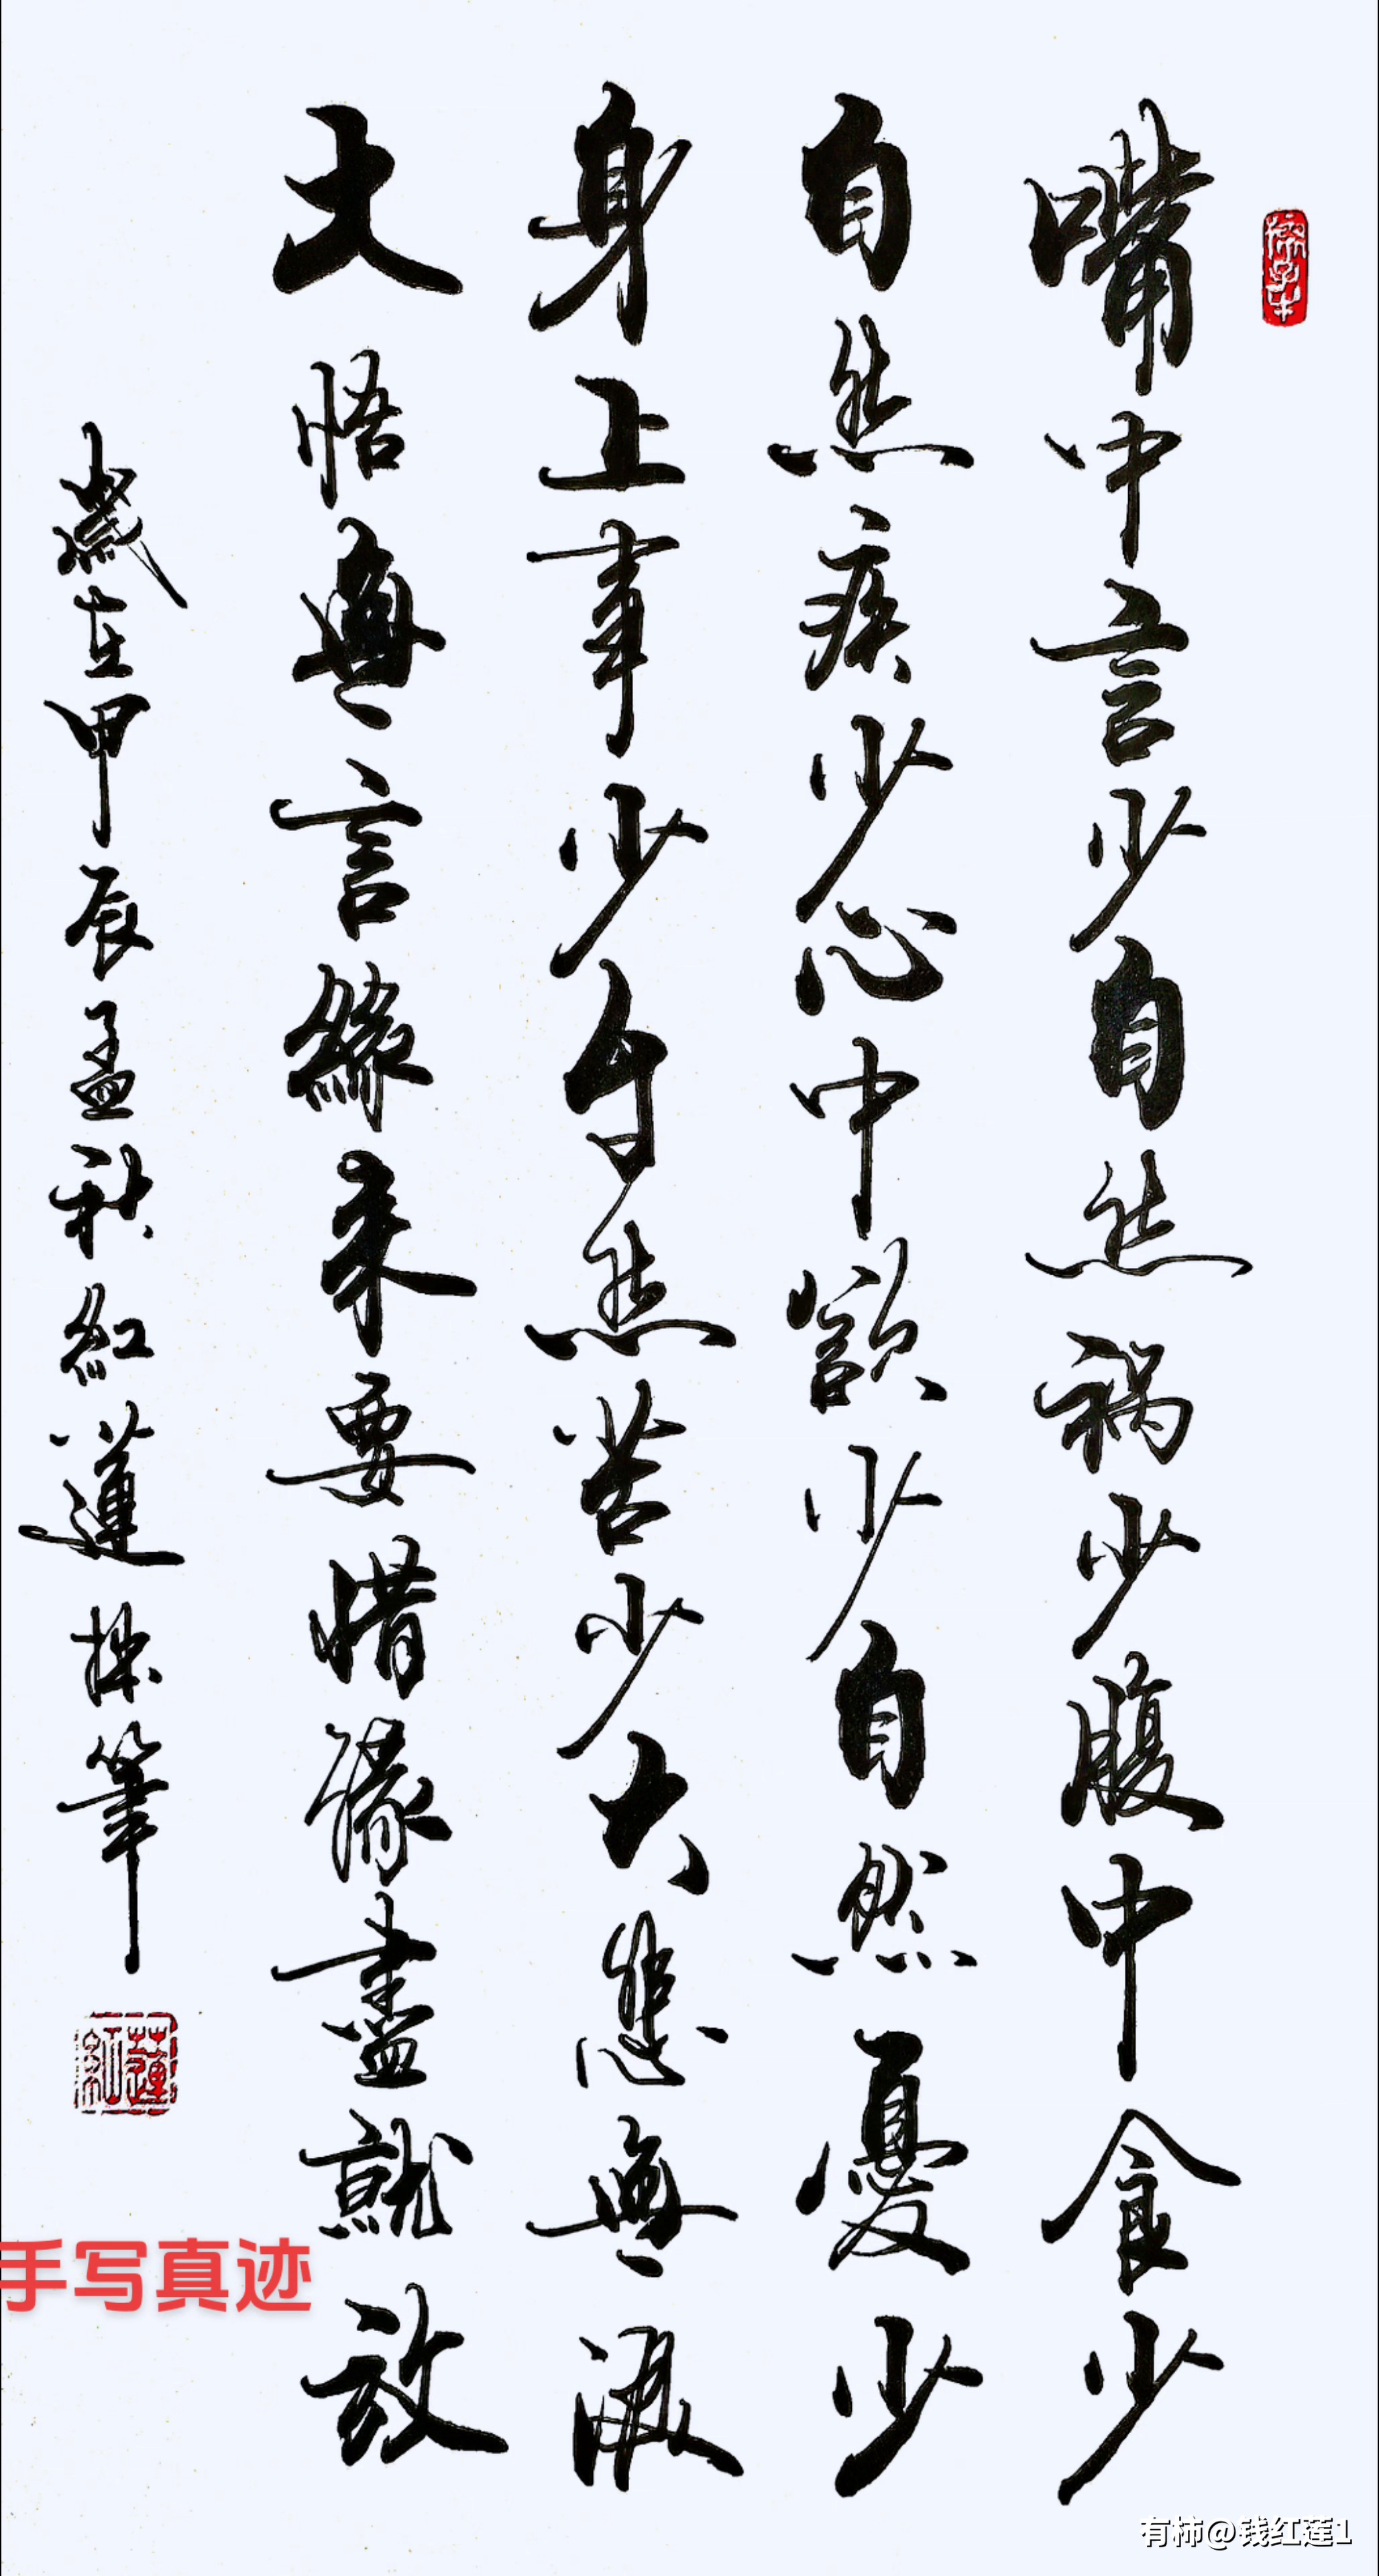 嘴中言少自然祸少腹中食少
自然疾少心中欲少自然憂少
身上事少自然苦少大悲無淚
大悟無言緣来要惜緣盡就放
歲在甲辰孟秋紅蓮拙筆
蓮紅
手写真迹
有柿@钱红莲1